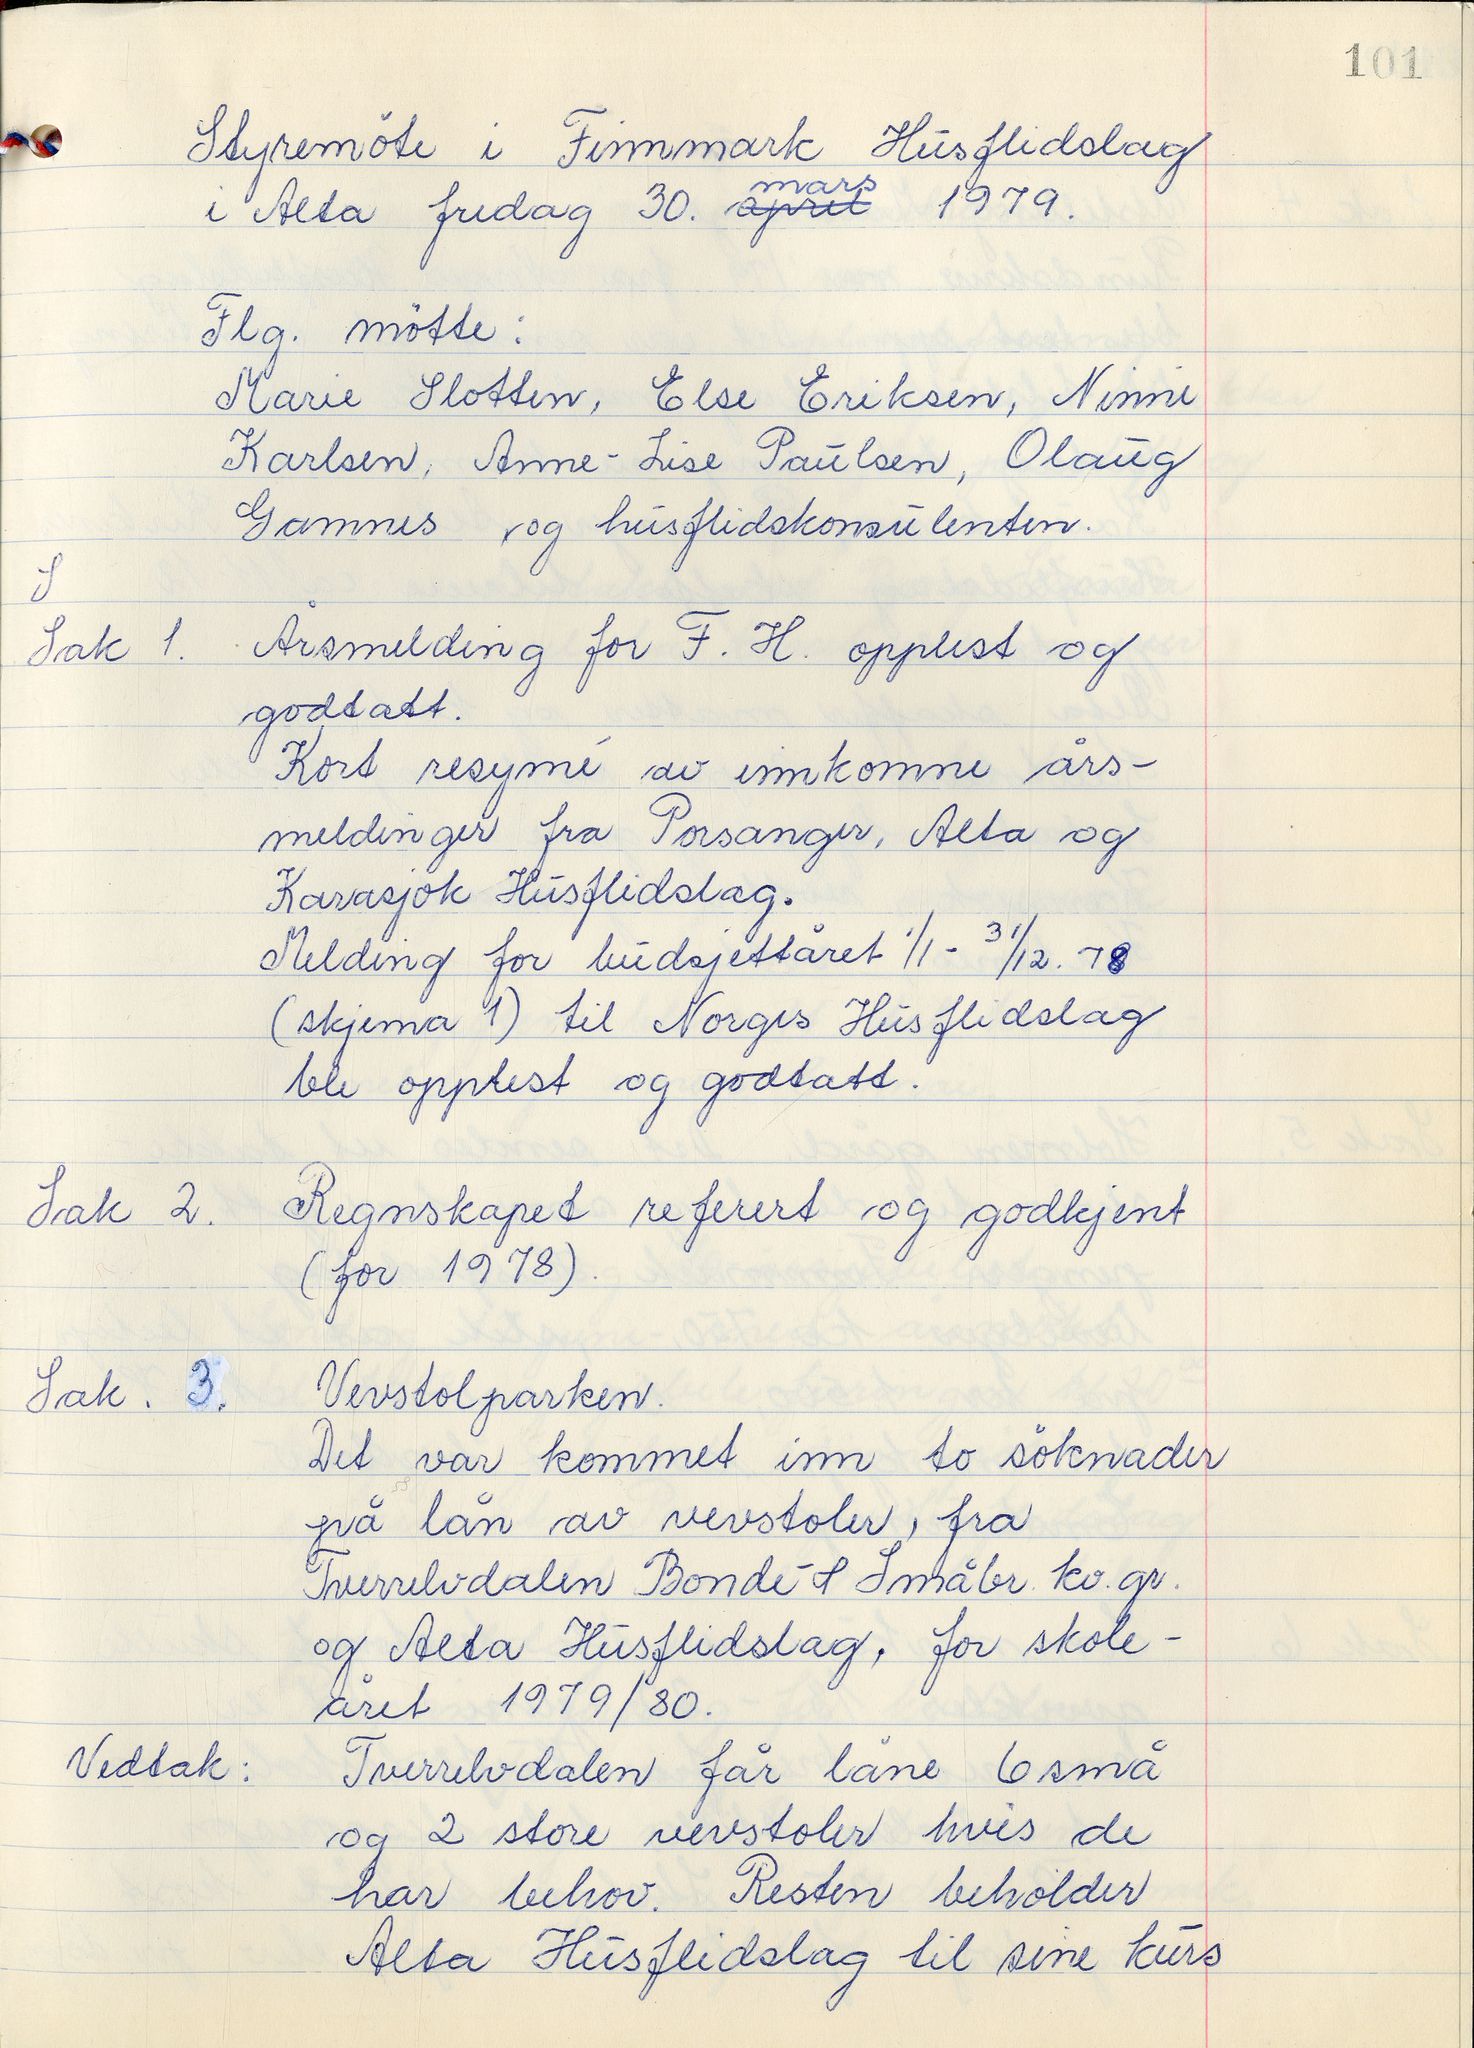 101
Styremöte i Finnmark Husflidslag
i Alta fredag 30. ~~april~~ mars 1979.
Flg. mötte:
Marie Slotten, Else Eriksen, Ninni
Karlsen, Anne-Lise Paulsen, Olaug
Gamnes og husflidskonsulenten.
S
Sak 1. Årsmelding for F. H. opplest og
godtatt.
Kort resymé av innkomne års-
meldinger fra Porsanger, Alta og
Karasjok Husflidslag.
Melding for budsjettåret 1/1 - 31/12. 78
(skjema 1) til Norges Husflidslag
ble opplest og godtatt.
Sak 2. Regnskapet referert og godkjent
(for 1978).
Sak. 3. Vevstolparken.
Det var kommet inn to söknader
på lån av vevstoler, fra
Tverrelvdalen Bonde- & Småbr. kv. gr.
og Alta Husflidslag, for skole-
året 1979/80.
Vedtak: Tverrelvdalen får låne 6 små
og 2 store vevstoler hvis de
har behov. Resten beholder
Alta Husflidslag til sine kurs